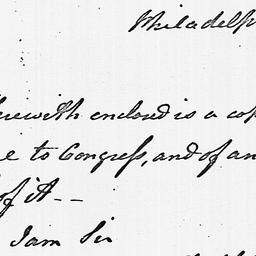 Philadelp
herewith enclosd is a cop
e to Congress, and of an
of it --
I am Sir